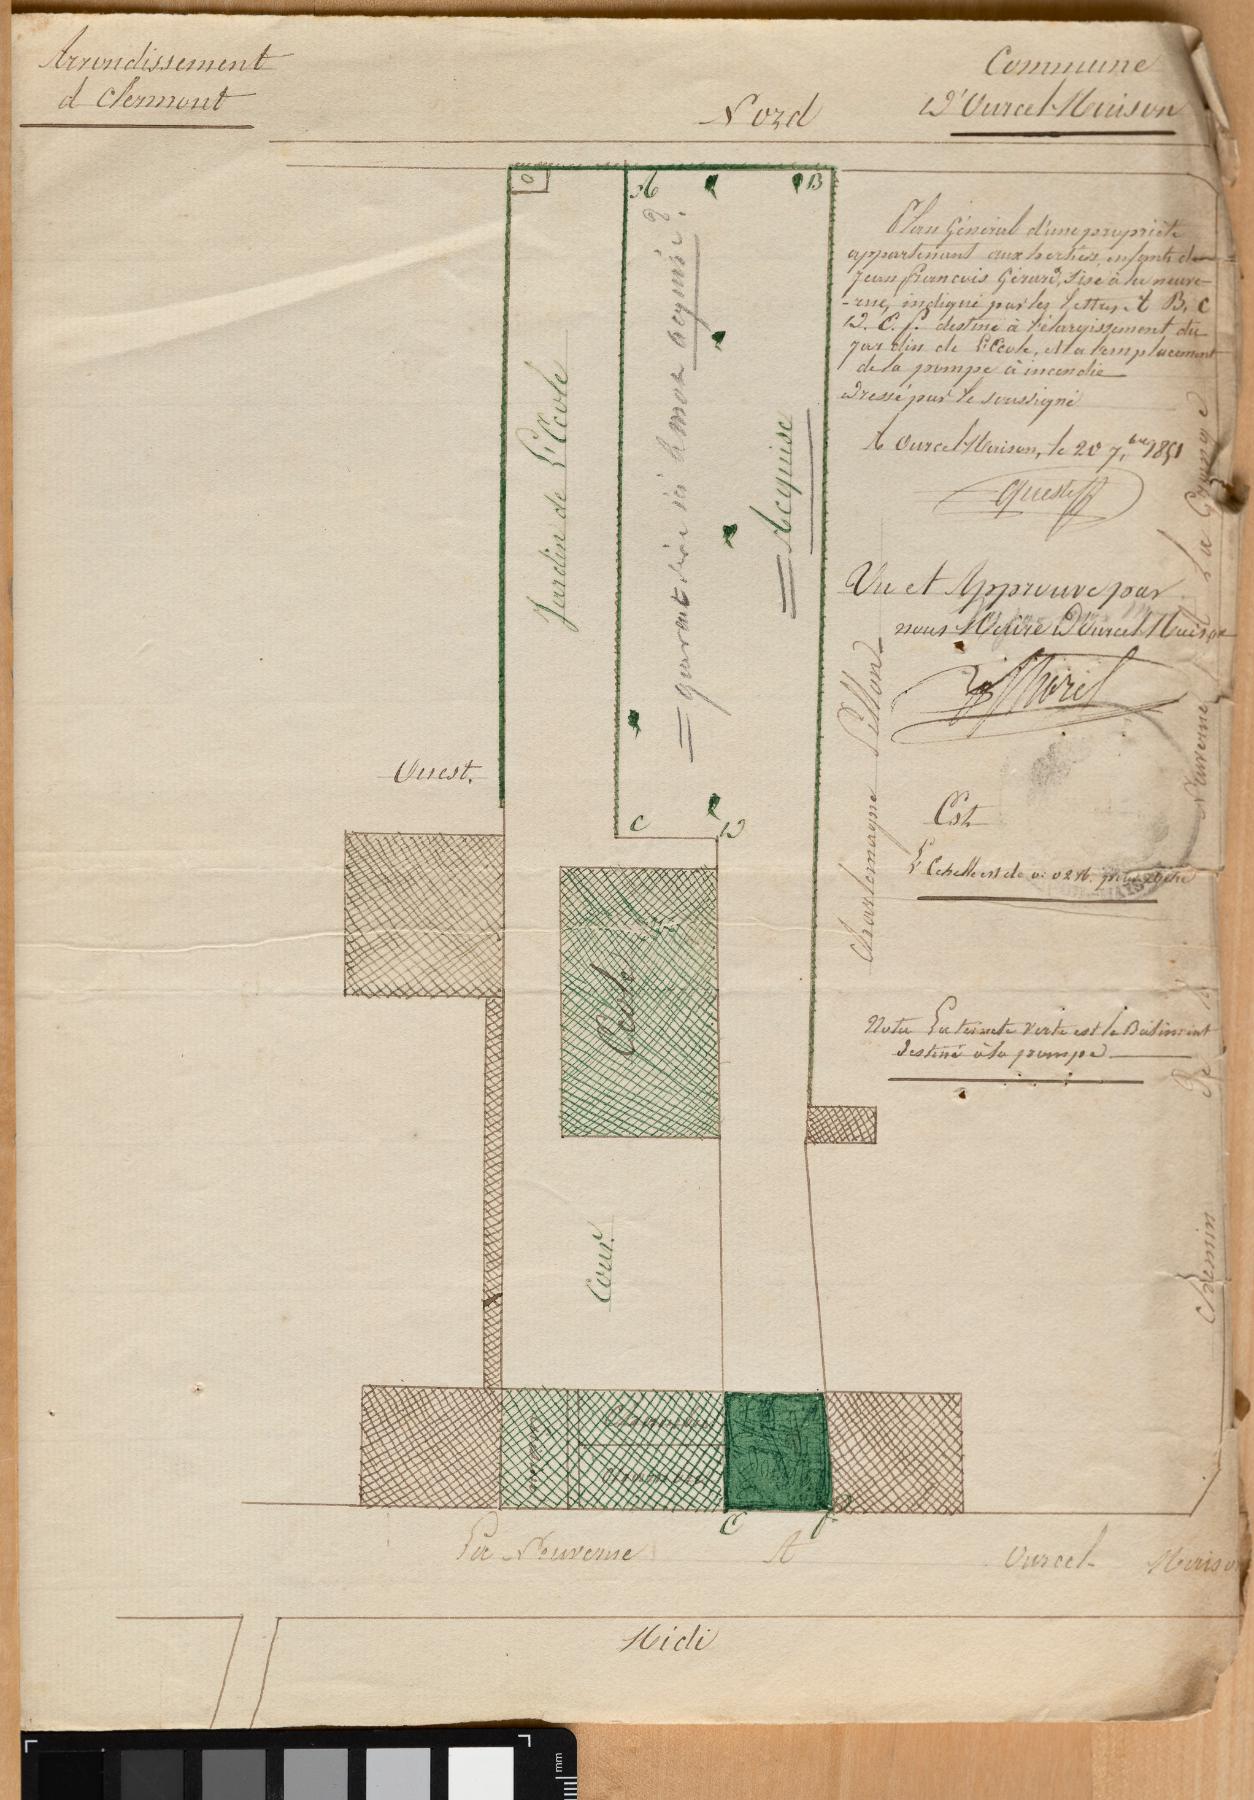 Arrondissement
d Clermont
Commune
D'Ourcel-Maison
Nord
A
B
Plan Général d'une propriété
appartenant aux heritiers, enfants de
Jean françois Gérard, sise à la neuve-
-rue, indiqué par les lettres A B, C
D. E. f. destiné à l'élargissement du
jardin de L'école, et a l'emplacement
de la pompe à incendie
Dressé par le soussigné
A Ourcel-Maison, le 20 7,bre 1851
Vu et Approuvé par
nous Maire D'Ourcel-Maison
Jardin de L'Ecole
acquise ?
Acquise
Ouest.
C
D
Charlemagne
Est
L'Echelle est de
Nota La teinte verte est le Bâtiment
destiné à la pompe
Ecole
Cour
Chemin de la
La Grange
E
f
La Neuverue
A
Ourcel-Maison
Midi
mm